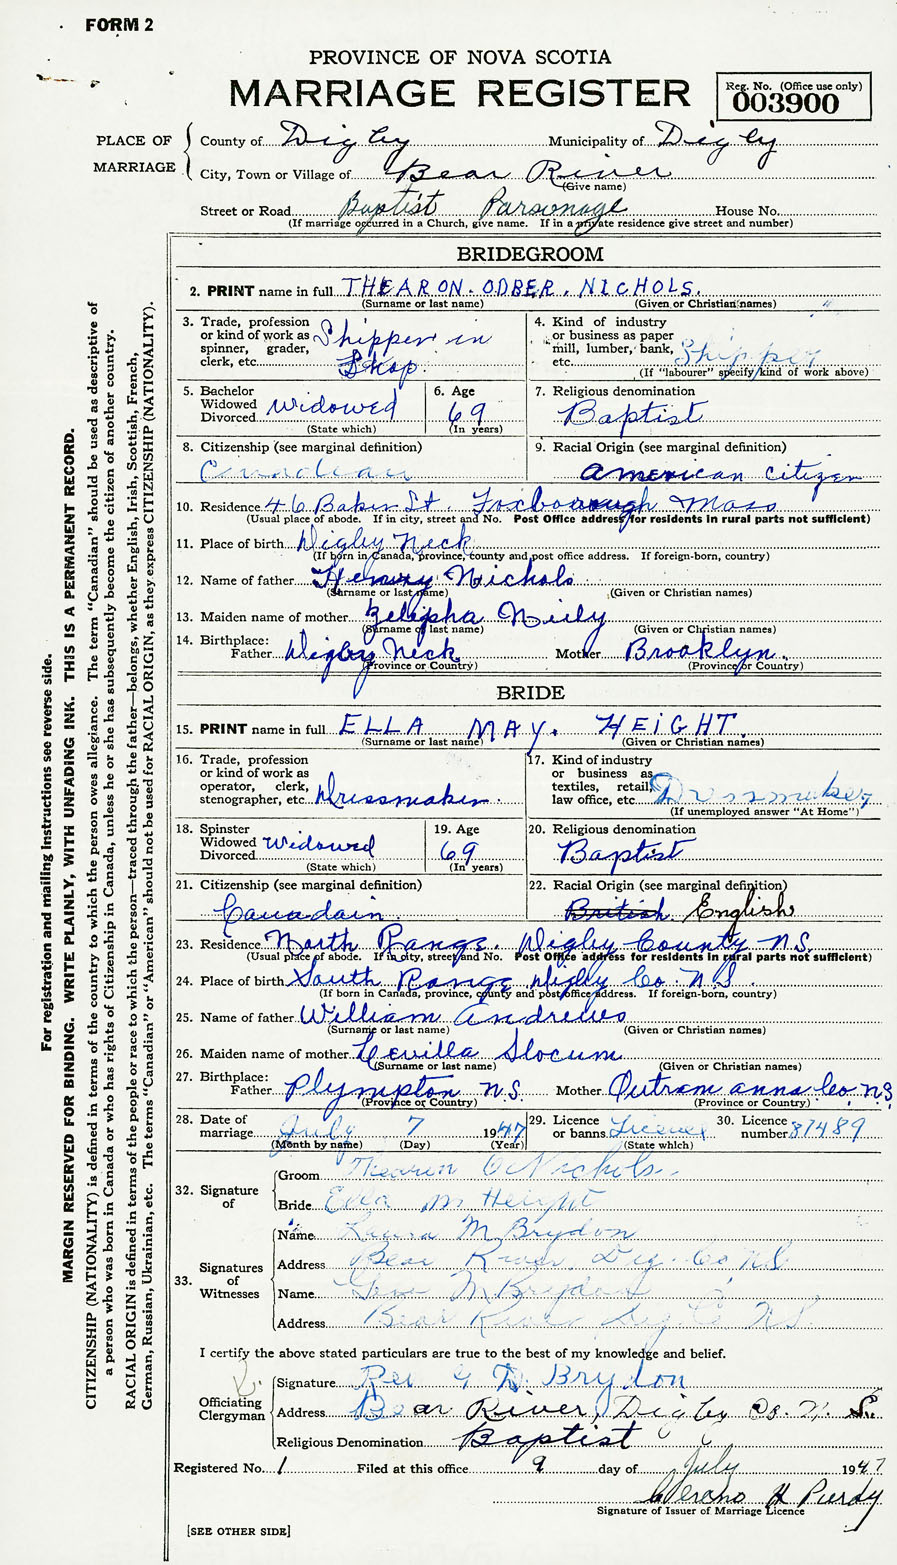 FORM 2
PROVINCE OF NOVA SCOTIA
MARRIAGE REGISTER
Reg. No. (Office use only)
003900
PLACE OF MARRIAGE
County of Digby Municipality of Digby
City, Town or Village of Bear River
(Give name)
Street or Road Baptist Parsonage House No.
(If marriage occurred in a Church, give name. If in a private residence give street and number)
BRIDEGROOM
2. PRINT name in full THEARON. ODBER. NICHOLS.
(Surname or last name) (Given or Christian names)
3. Trade, profession or kind of work as spinner, grader, clerk, etc. Shipper in Shop.
4. Kind of industry or business as paper mill, lumber, bank, etc. Shipper
(If "labourer" specify kind of work above)
5. Bachelor Widowed Divorced widowed
(State which)
6. Age 69
(In years)
7. Religious denomination
Baptist
8. Citizenship (see marginal definition)
Canadian
9. Racial Origin (see marginal definition)
American Citizen
10. Residence 46 Baker St. Foxborough Mass
(Usual place of abode. If in city, street and No. Post Office address for residents in rural parts not sufficient)
11. Place of birth Digby Neck
(If born in Canada, province, county and post office address. If foreign-born, country)
12. Name of father Henry Nichols
(Surname or last name) (Given or Christian names)
13. Maiden name of mother Nily
(Surname or last name) (Given or Christian names)
14. Birthplace:
Father Digby Neck Mother Brooklyn.
(Province or Country) (Province or Country)
BRIDE
15. PRINT name in full ELLA MAY. HEIGHT.
(Surname or last name) (Given or Christian names)
16. Trade, profession or kind of work as operator, clerk, stenographer, etc. Dressmaker
17. Kind of industry or business as textiles, retail, law office, etc. Dressmaker
(If unemployed answer "At Home")
18. Spinster Widowed Divorced Widowed
(State which)
19. Age 69
(In years)
20. Religious denomination
Baptist
21. Citizenship (see marginal definition)
Canadain
22. Racial Origin (see marginal definition)
British English
23. Residence North Range. Digby County N.S.
(Usual place of abode. If in city, street and No. Post Office address for residents in rural parts not sufficient)
24. Place of birth South Range Digby Co. N.S.
(If born in Canada, province, county and post office address. If foreign-born, country)
25. Name of father William Andrews
(Surname or last name) (Given or Christian names)
26. Maiden name of mother Levilla Slocum
(Surname or last name) (Given or Christian names)
27. Birthplace:
Father Plympton N.S. Mother Outram anna Co. N.S.
(Province or Country) (Province or Country)
28. Date of marriage July 7 1947
(Month by name) (Day) (Year)
29. Licence or banns License
(State which)
30. Licence number 87489
32. Signature of
Groom Thearon O Nichols.
Bride Ella M Height
33. Signatures of Witnesses
Name Laura M Brydon
Address Bear River, Dig. Co N.S.
Name M Brydon
Address Bear River Dig Co N.S.
I certify the above stated particulars are true to the best of my knowledge and belief.
Officiating Clergyman
Signature Rev G D. Brydon
Address Bear River, Digby Co. N. S.
Religious Denomination Baptist
Registered No. 1 Filed at this office 9 day of July 1947
H Purdy
Signature of Issuer of Marriage Licence
[SEE OTHER SIDE]
For registration and mailing instructions see reverse side.
MARGIN RESERVED FOR BINDING. WRITE PLAINLY, WITH UNFADING INK. THIS IS A PERMANENT RECORD.
CITIZENSHIP (NATIONALITY) is defined in terms of the country to which the person owes allegiance. The term "Canadian" should be used as descriptive of
a person who was born in Canada or who has rights of Citizenship in Canada, unless he or she has subsequently become the citizen of another country.
RACIAL ORIGIN is defined in terms of the people or race to which the person—traced through the father—belongs, whether English, Irish, Scottish, French,
German, Russian, Ukrainian, etc. The terms "Canadian" or "American" should not be used for RACIAL ORIGIN, as they express CITIZENSHIP (NATIONALITY).